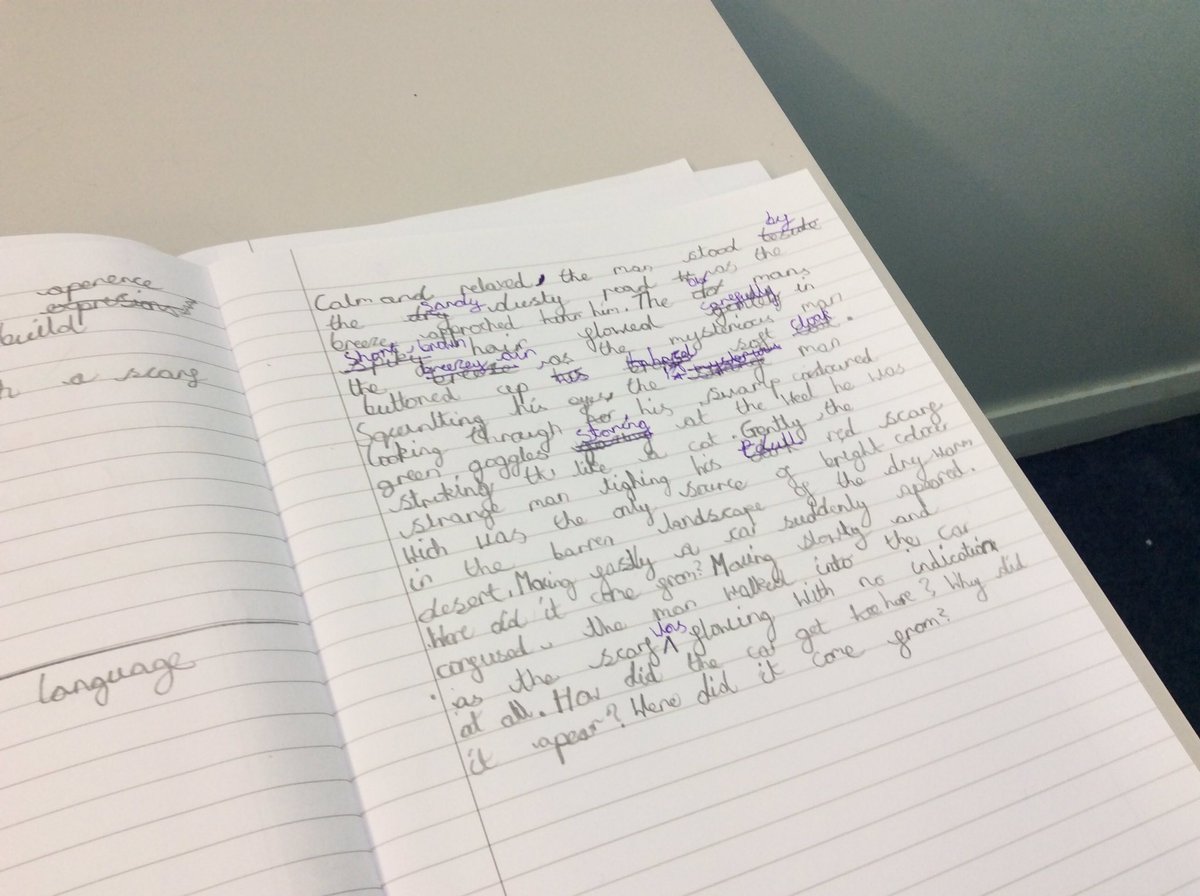 aperence
expresions
build
a scarf
language
Calm and relaxed, the man stood by
the sandy dusty road as the
breeze approched him. The mans
short, brown hair flowed carefully in
the breezey air as the mysterious man
buttoned up soft cloak.
Squinting his eyes the man
looking through his swamp coloured
green goggles staring at the
stroking like a cat. Gently, the
strange man his red scarf
wich was the only source of bright colour
in the barren landscape of the dry warm
desert. Moving fastly a car suddenly apored.
Were did it come from? Moving slowly and
confused, the man walked into the car
as the scarf was flowing with no indication
at all. How did the car get here? Why did
it apear? Were did it come from?